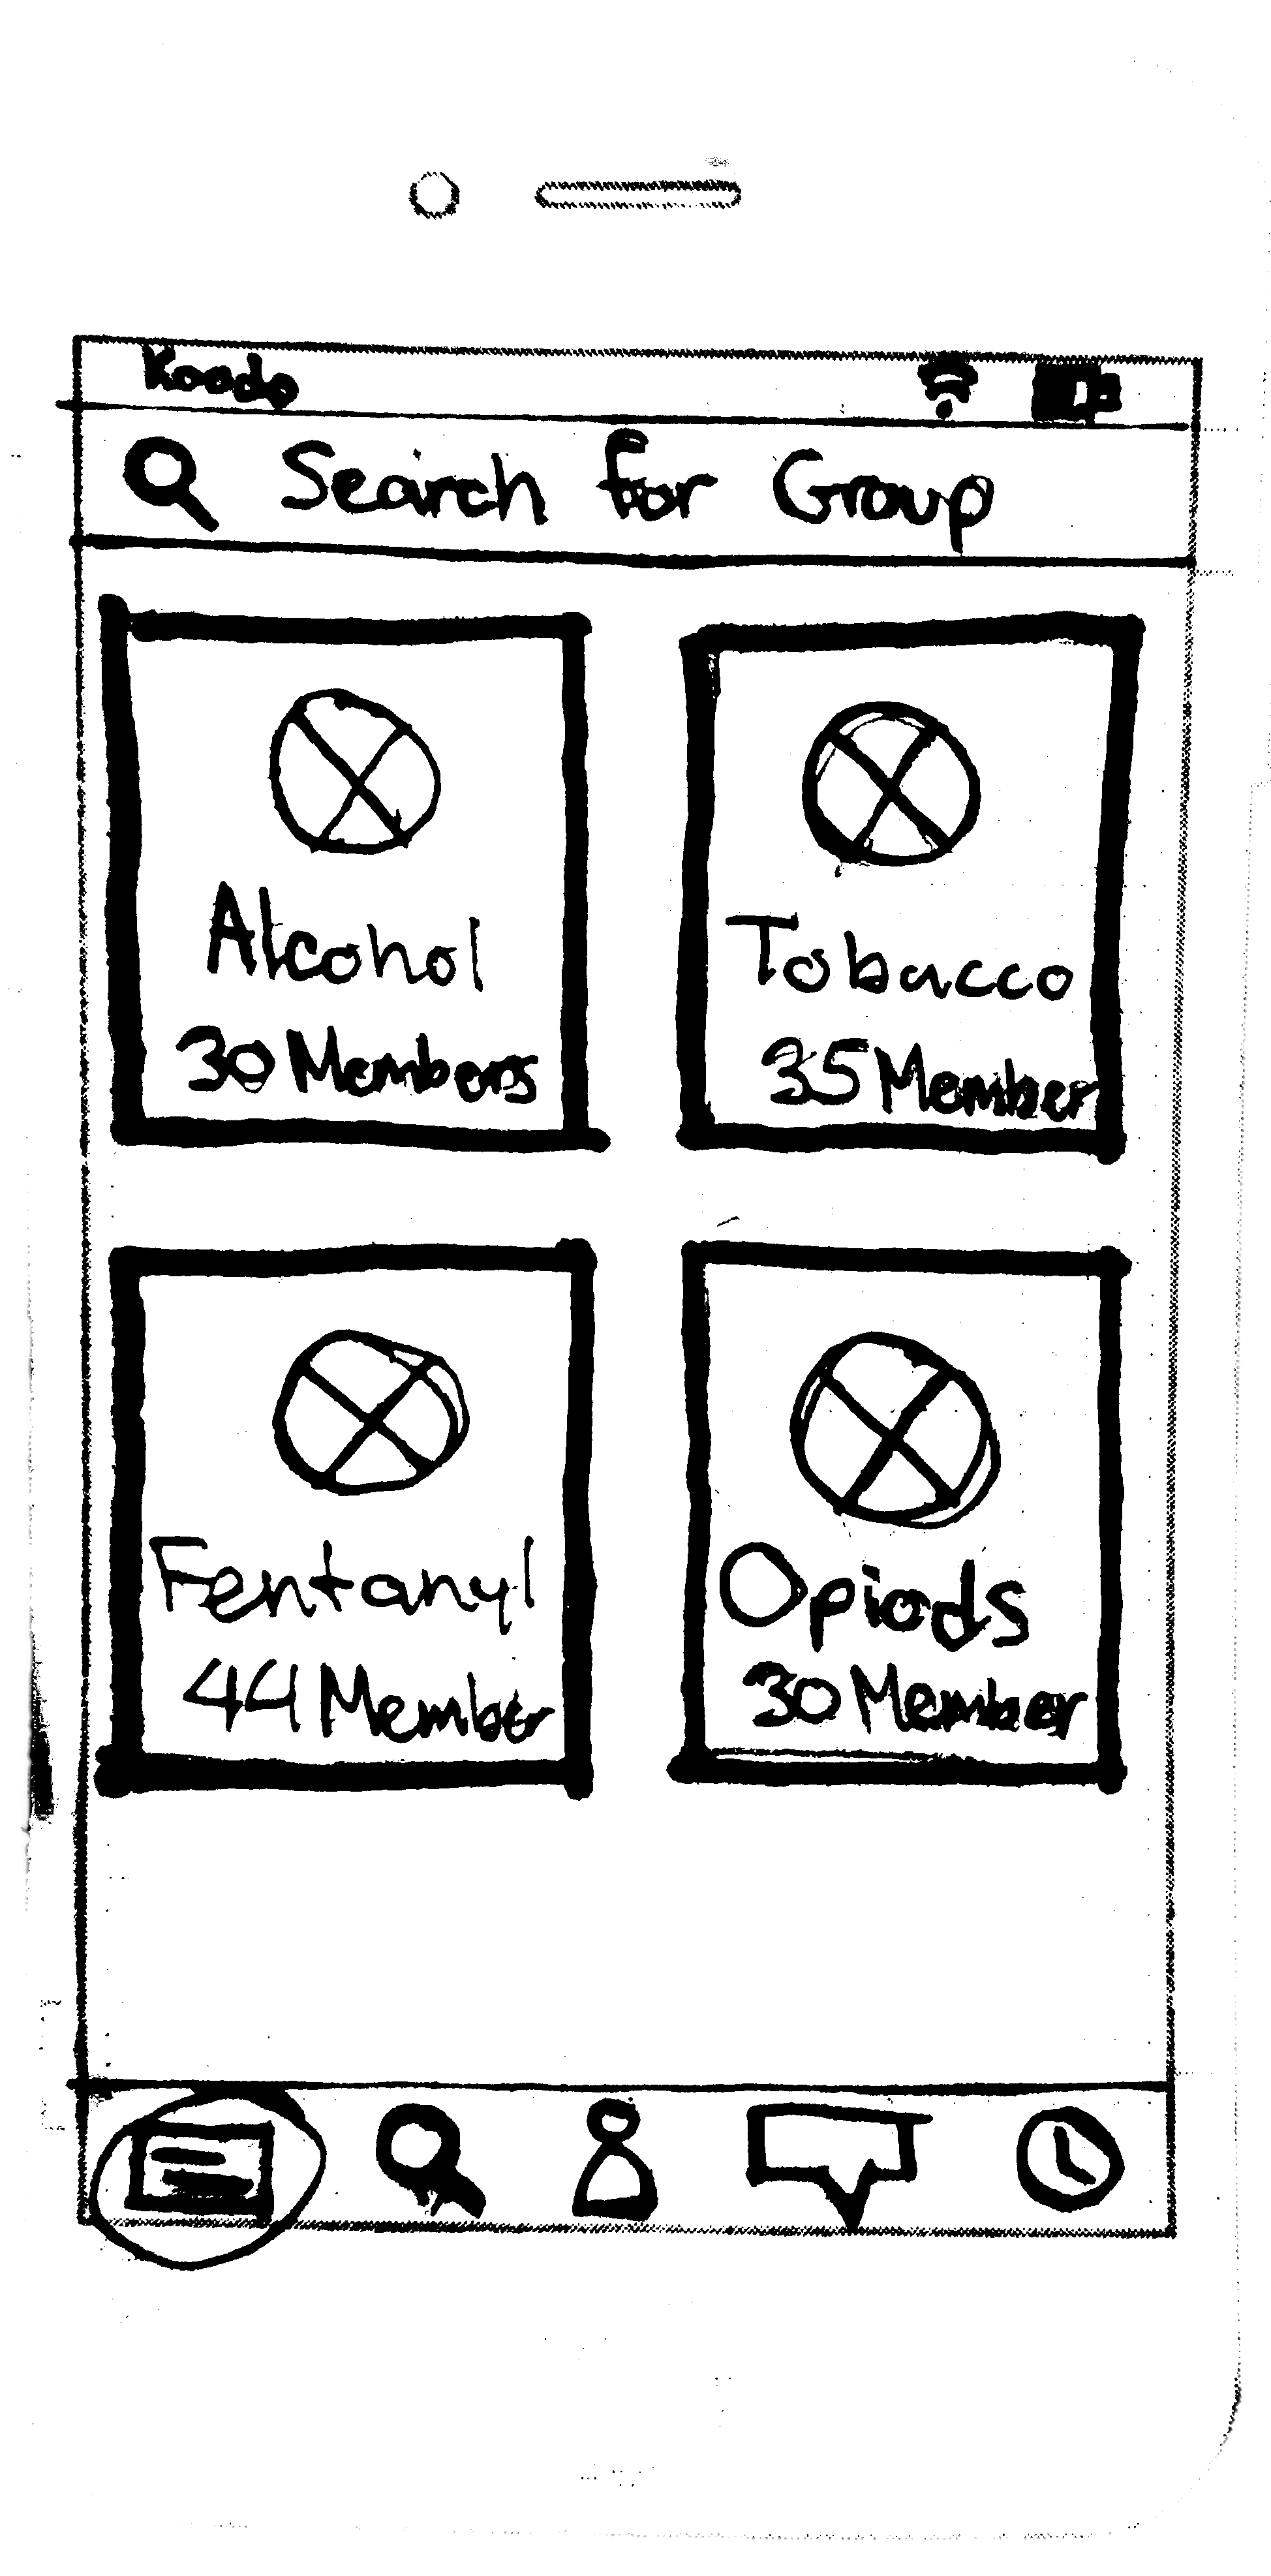 Koodo
Search for Group
Alcohol
30 Members
Tobacco
35 Member
Fentanyl
44 Member
Opiods
30 Member